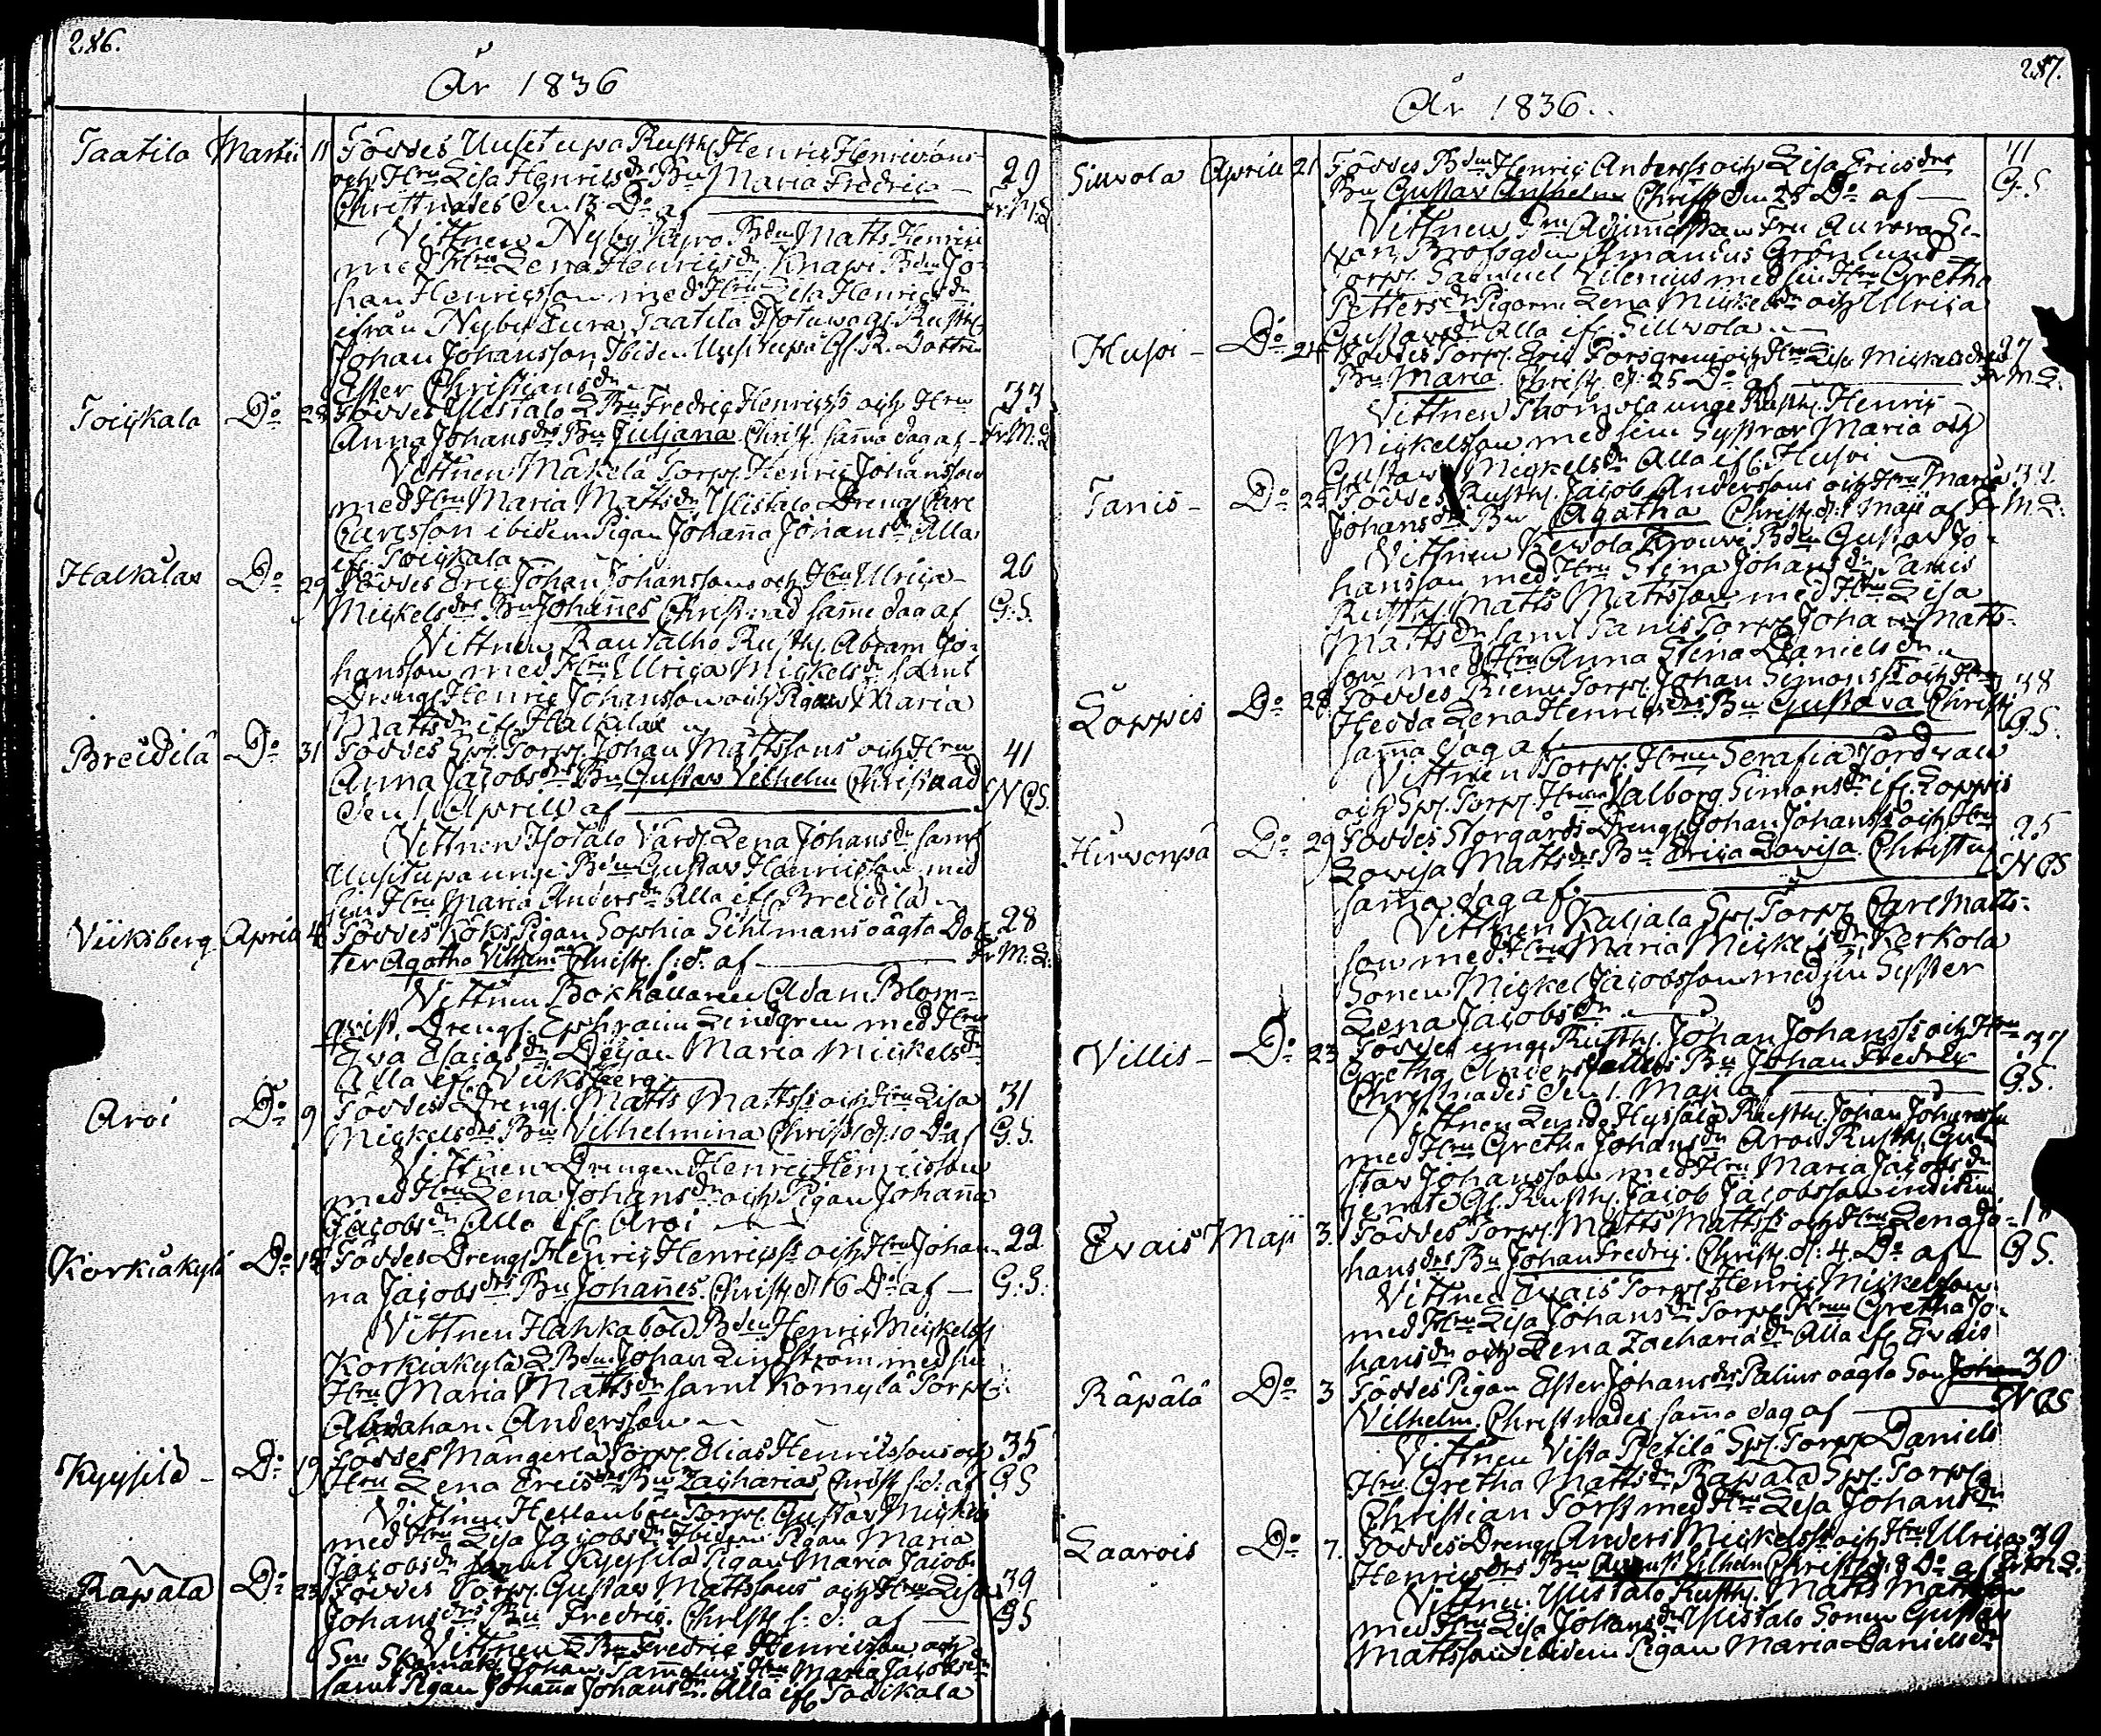 286.
År 1836
Taatila Martii 11 Föddes Uusitupa Rusth. Henric Henricsons 29
och Hru Lisa Henricsdrs Bn Maria Fredrica
Christnades den 13 Do af Fr. M. L.
Vittnen Nyby Bdn Matts Henrics
med Hru Lena Henricsdr, Knapi Bdn Jo-
han Henricsson med Hru Lisa Henricsdr
ifrån Nyby Eura, Taatila Rusth.
Johan Johansson Ibidem Uusitupa Gl. R. Dottren
Ester Christiansdr
Toickala Do 28 Föddes Ylistalo L Bn Fredric Henricss och Hru 33
Anna Johansdrs Bn Juliana Christ. samma dag af Fr. M. L
Vittnen Mäkelä Torp. Henric Johansson
med Hru Maria Mattsdr Ylistalo Dreng Carl
Carlsson ibidem Pigan Johanna Johansdr Alla
if. Toickala
Halkilax Do 29 Föddes Eric Johan Johanssons och Hru Ulrica 26
Mickelsdrs Bn Johannes Christnad samma dag af G. S.
Vittnen Rautalho Rusth. Abram Jo-
hansson med Hru Ulrica Mickelsdr samt
Drengen Henric Johansson och Pigan Maria
Mattsdr if. Halkilax
Breidilä Do 31 Föddes Spl. Torp. Johan Mattssons och Hru 41
Anna Jacobsdrs Bn Gustav Vilhelm Christnad
den 1 Aprill af N GS.
Vittnen Isotalo Värds. Lena Johansdr samt
Uusitupa unge Bdn Gustav Henricsson med
sin Hru Maria Andersdr Alla if. Breidilä
Viiksberg Aprill 4 Föddes Köks Pigan Sophia Sihlmans oägta Dot- 28
ter Agatha Vilhelmina Christ. s. d. af Fr M. L.
Vittnen Bokhållaren Adam Blom-
qvist, Drengs. Ephraim Lindgren med Hru
Eva Esaiasdr Dejan Maria Mickelsdr
Alla if. Viiksberg
Aroi Do 9 Föddes Dreng. Matts Mattss och Hru Lisa 31
Mickelsdrs Bn Vilhelmina Christ d. 10 Do af G. S.
Vittnen Drengen Henric Henricsson
med Hru Lena Johansdr och Pigan Johanna
Jacobsdr Alla if. Aroi
Korkiakylä Do Föddes Dreng Henric Henricss och Hru Johan- 22
na Jacobsdrs Bn Johannes Christ d. 16 Do af G. S.
Vittnen Hahkaböld Bdn Henric Mickelss
Korkiakylä L Bdn Johan Lindström med sin
Hru Maria Mattsdr samt Komylä Torp.
Abraham Andersson
Kyysilä Do 19 Föddes Mangerla Torp. Elias Henricssons och 35
Hru Lena Ericsdrs Bn Zacharias Christ s. d. af GS
Vittnen Torp. Gustav Mickels
med Hru Lisa Jacobsdr Ibidem Pigan Maria
Jacobsdr samt Kyysilä Pigan Maria Jacobs
Räpälä Do 23 Föddes Torp. Gustav Mattssons och Hru Lisa 39
Johansdrs Bn Fredric Christ s. d. af GS
Vittnen L Bn Fredric Henricsson och
Johan Hru Maria Jacobsdr
samt Pigan Johanna Johansdr. Alla if. Toickala
287.
År 1836.
Sillvola Aprill 21 Föddes Bdn Henric Anderss och Lisa Ericsdrs 41
Bn Gustav Anshelm Christ den 25 Do af G. S
Vittnen Fru Aurora
Brofogden Amandus Grönlund
Torp. Samuel Vilenius med sin Hru Gretha
Pettersdr Pigorne Lena Mickelsdr och Ulrica
Gustavsdr Alla if. Sillvola
Husoi Do 24 Föddes Torp. Eric Forsgrens och Hru Lisa Mickelsdrs 37
Bn Maria Christ. d. 25 Do af Fr M. L.
Vittnen unge Rusth. Henric
Mickelsson med sine Systrar Maria och
Gustava Mickelsdr Alla if. Husoi
Tanis Do 25 Föddes Rusth. Jacob Anderssons och Hru Maria
Johansdrs Bn Agatha Christ. d. 1 Maji af Fr M. L.
Vittnen Kewola Bdn Gustav Jo-
hansson med Hru Stena Johansdr, Tanis
Rusth. Matts Mattsson med Hru Lisa
Mattsdr samt Tanis Torp. Johan Matts-
son med Hru Anna Stena Danielsdr
Loppis Do 28 Föddes Torp. Johan Simonss och Hru 38
Hedda Lena Henricsdrs Bn Gustava Christ
samma dag af G. S.
Vittnen Torp. Hrun Serafia
och Spl. Torp. Hrun Valborg Simonsdr if. Loppis
Hirvonpä Do 29 Föddes Storgårds Dreng Johan Johanss och Hru 25
Lovisa Mattsdrs Bn Erica Lovisa Christnad
samma dag af N GS
Vittnen Kaljala Spl. Torp. Carl Matts-
son med Hru Maria Mickelsdr Kerkola
Sonen Mickel Jacobsson med sin Syster
Lena Jacobsdr
Villis Do 23 Föddes unge Rusth. Johan Johanss och Hru 37
Gretha Bn Johan Fredric
Christnades den 1. Maji af G. S.
Vittnen Rusth. Johan Johansson
med Hru Gretha Johansdr Aroi Rusth. Gu-
stav Johansson med Hru Maria Jacobsdr
jemte Gl. Rusth. Jacob Jacobsson
Evais Maji 3. Föddes Torp. Matts Mattss och Hru Lena Jo-
hansdrs Bn Johan Fredric. Christ d. 4. Do af GS.
Vittnen Evais Torp. Henric Mickelsson
med Hru Lisa Johansdr Torp. Hrun Gretha Jo-
hansdr och Lena Zachariædr Alla if. Evais
Räpälä Do 3 Föddes Pigan Ester Johansdrs Palins oägta Son Johan 30
Vilhelm. Christnades samma dag af N GS
Vittnen Vista Petilä Spl. Torp. Daniels
Hru Gretha Mattsdr, Räpälä Spl. Torp.
Christian Torst med Hru Lisa Johansdr
Laarois Do 7. Föddes Dreng Anders Mickelss och Hru Ulrica 39
Henricsdrs Bn August Vilhelm Christ d. 8 Do af Fr M L.
Vittnen Ylistalo Rusth. Matts Mattsson
med Hru Lisa Johansdr Ylistalo Sonen Gustav
Mattsson ibidem Pigan Maria Danielsdr